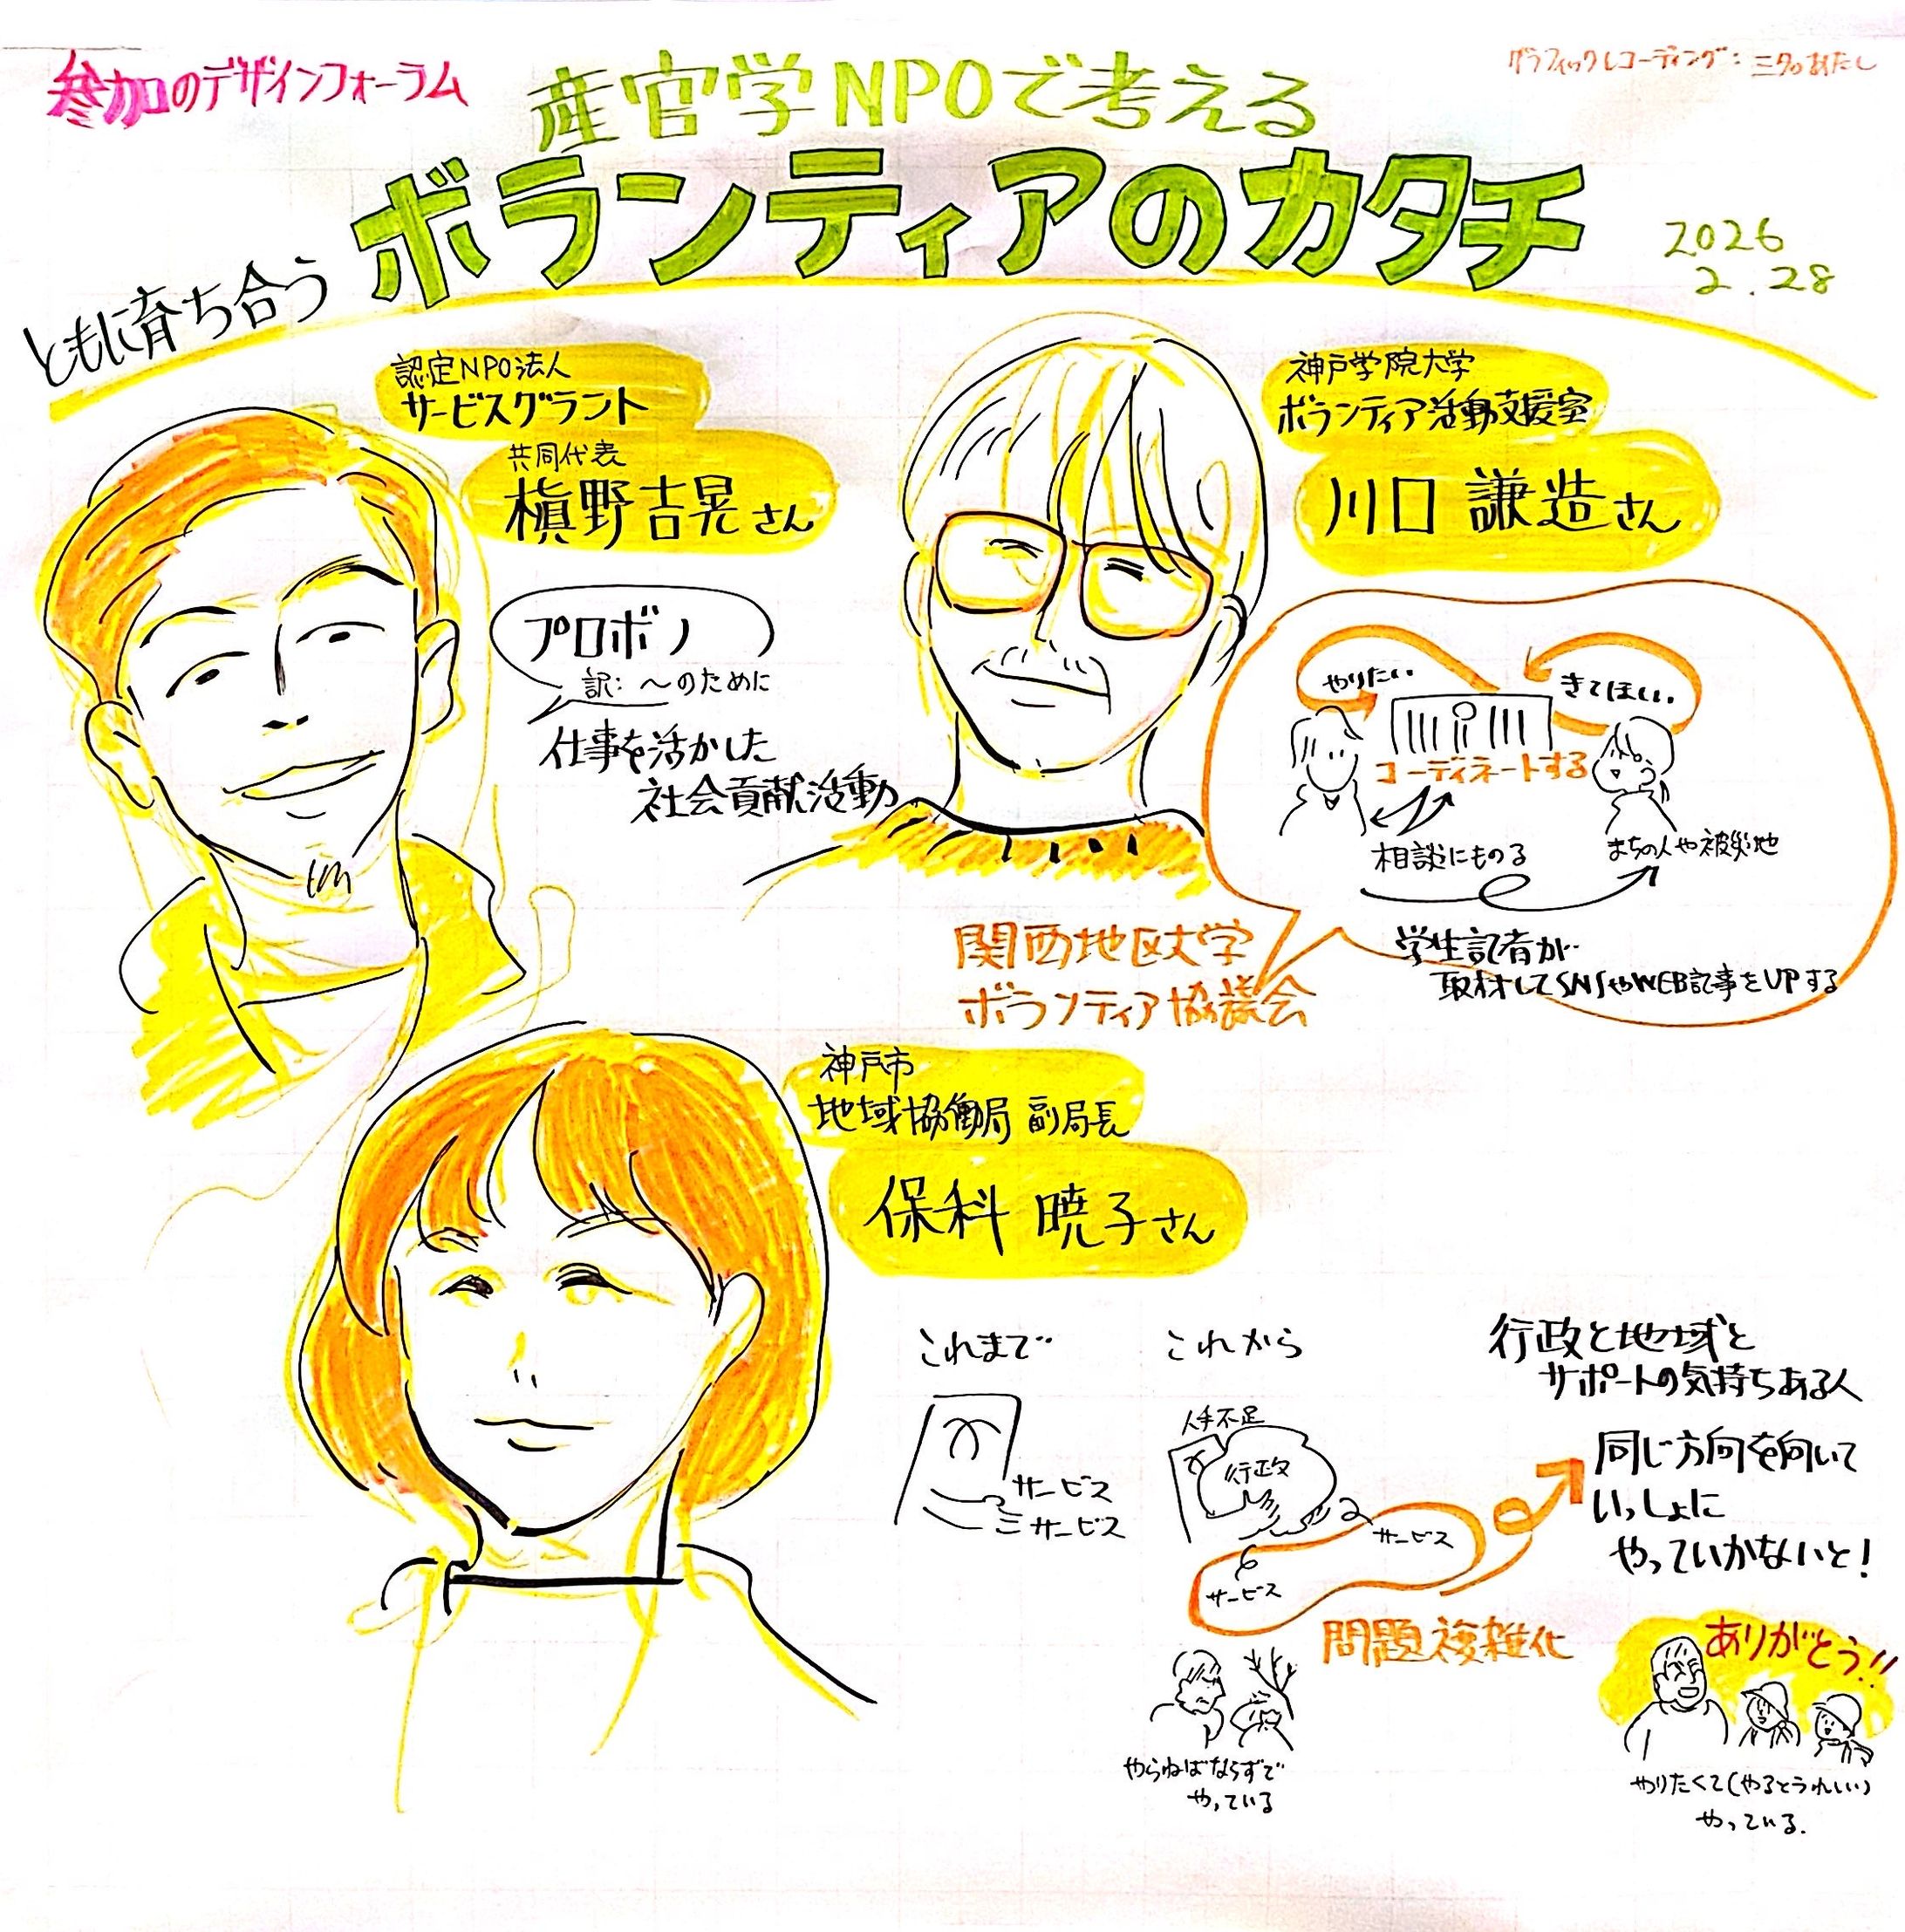 参加のデザインフォーラム
産官学NPOで考える
グラフィックレコーディング:
ともに育ち合う
ボランティアのカタチ
2026
2.28
認定NPO法人
サービスグラント
共同代表
槇野吉晃さん
プロボノ
訳:〜のために
仕事を活かした
社会貢献活動
神戸学院大学
ボランティア活動支援室
川口 謙造さん
やりたい
きてほしい
コーディネートする
相談にものる
まちの人や被災地
学生記者が
取材してSNSやWEB記事をUPする
関西地区大学
ボランティア協議会
神戸市
地域協働局 副局長
保科 暁子さん
これまで
サービス
サービス
これから
人手不足
行政
サービス
サービス
問題複雑化
行政と地域と
サポートの気持ちある人
同じ方向を向いて
いっしょに
やっていかないと!
やらねばならずで
やっている
ありがとう!!
やりたくて(やるとうれしい)
やっている.